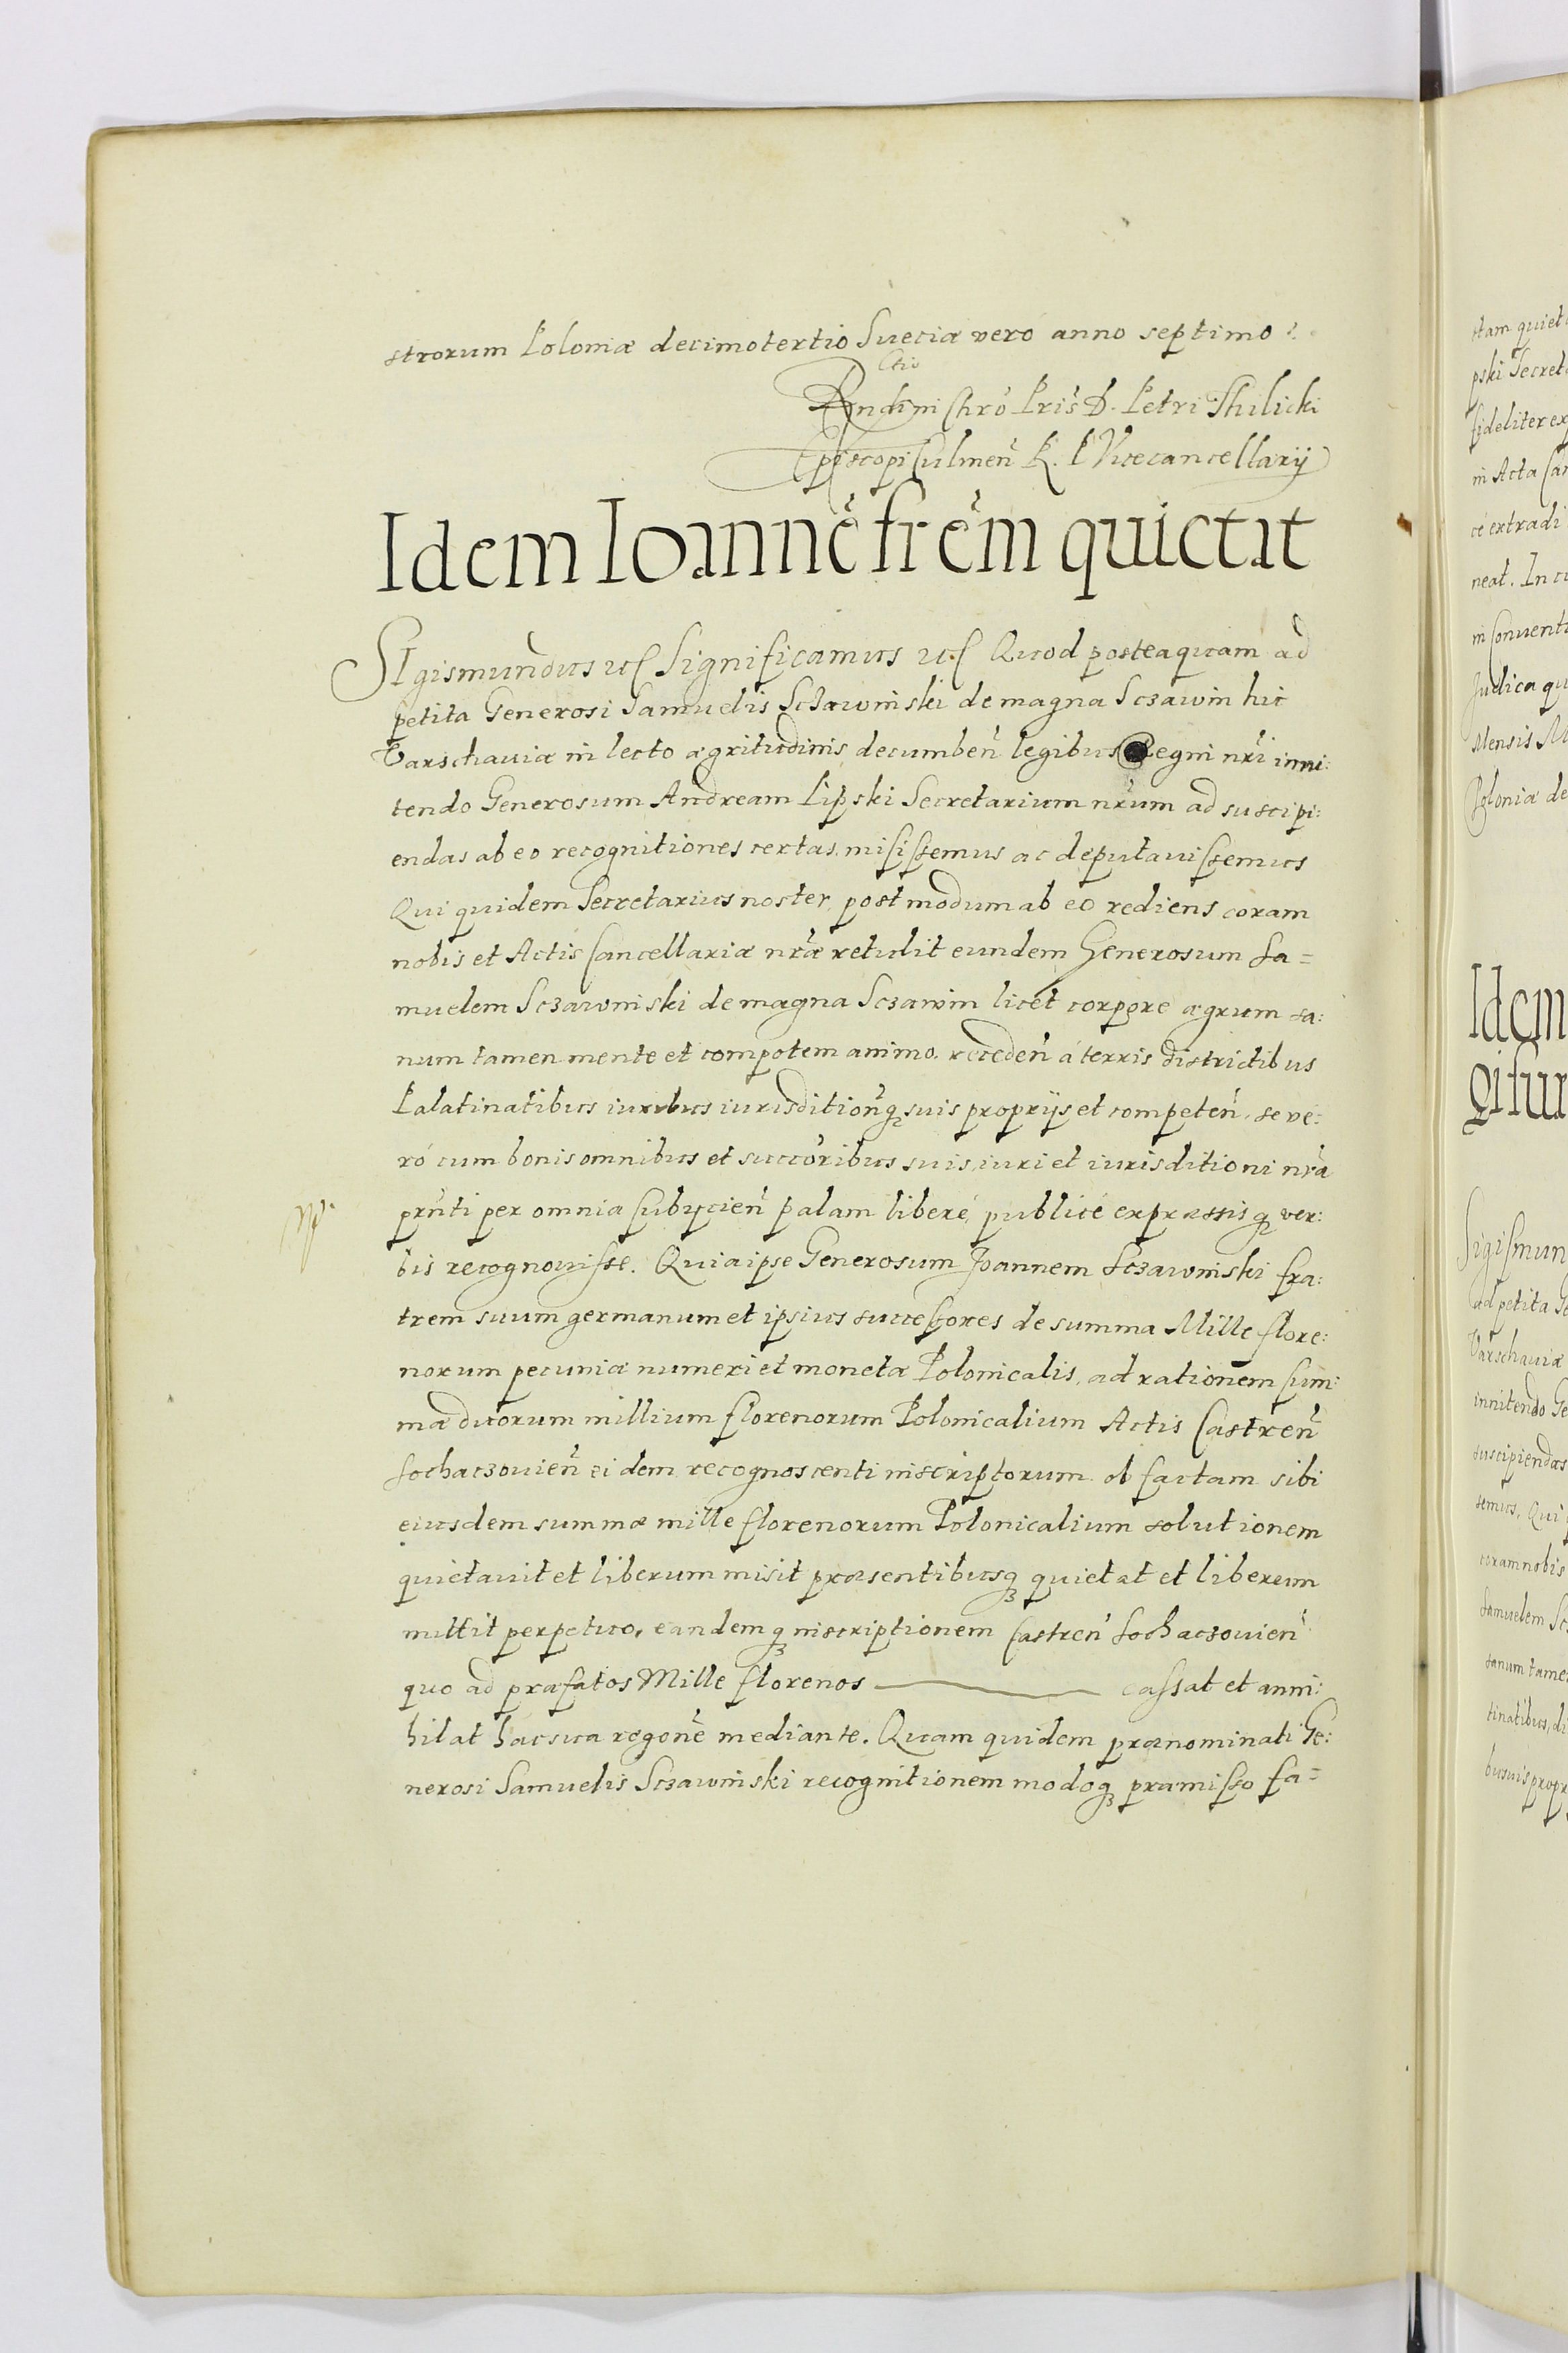 strorum Poloniæ decimotertio Sueciæ vero anno septimo
Rndi in Chrō Pris D. Petri Thilicki
Episcopi Culmen̄ R. P Vicecancellarij
Idem Ioannē frēm quietat
SIgismundus etc Significamus etc Quod posteaquam ad
petita Generosi Samuelis Sczawinski de magna Sczawin hic
Varschauiæ in lecto ægritudinis decumben̄ legibus Regni nr̄i inni:
tendo Generosum Andream Lipski Secretarium nr̄um ad suscipi:
endas ab eo recognitiones certas misissemus ac deputauissemus
Qui quidem Secretarius noster post modum ab eo rediens coram
nobis et Actis Cancellariæ nr̄æ retulit eundem Generosum Sa=
muelem Sczawinski de magna Sczawin licet corpore ægrum sa:
num tamen mente et compotem animo. receden̄ á terris districtibus
Palatinatibus iuribus iurisdition̄q suis proprijs et competen̄. se ve:
ró cum bonis omnibus et succōribus suis iuri et iurisditioni nr̄æ
prn̄ti per omnia subijcien̄ palam liberé, publicé expræssisq ver:
bis recognouisse. Quia ipse Generosum Joannem Sczawinski fra:
trem suum germanum et ipsius successores de summa Mille flore:
norum pecuniæ numeri et monetæ Polonicalis, ad rationem sum:
mæ duorum millium florenorum Polonicalium Actis Castren̄
Sochaczouien̄ eidem recognoscenti inscriptorum ob factam sibi
eiusdem summæ mille florenorum Polonicalium solutionem
quietauit et liberum misit præsentibusq quietat et liberum
mittit perpetuo, eandemq inscriptionem Castren̄ Sochaczouien̄
quo ad præfatos Mille florenos ——— cassat et anni:
hilat hac sua regōne mediante. Quam quidem prænominati Ge:
nerosi Samuelis Sczawinski recognitionem modoq præmisso fa=
stam quiet
pski Secret
fideliter ex
in Acta Can
cé extradi
neat. In cu
in Conuentu
Judica qu
Mensis M
Poloniæ de
Idem
Sigismun
ad petita Ge
Varschauiæ
innitendo Ge
suscipiendas
semus, Qui
coram nobis
Samuelem Sc
sanum tame
tinatibus, di
bus suis propr